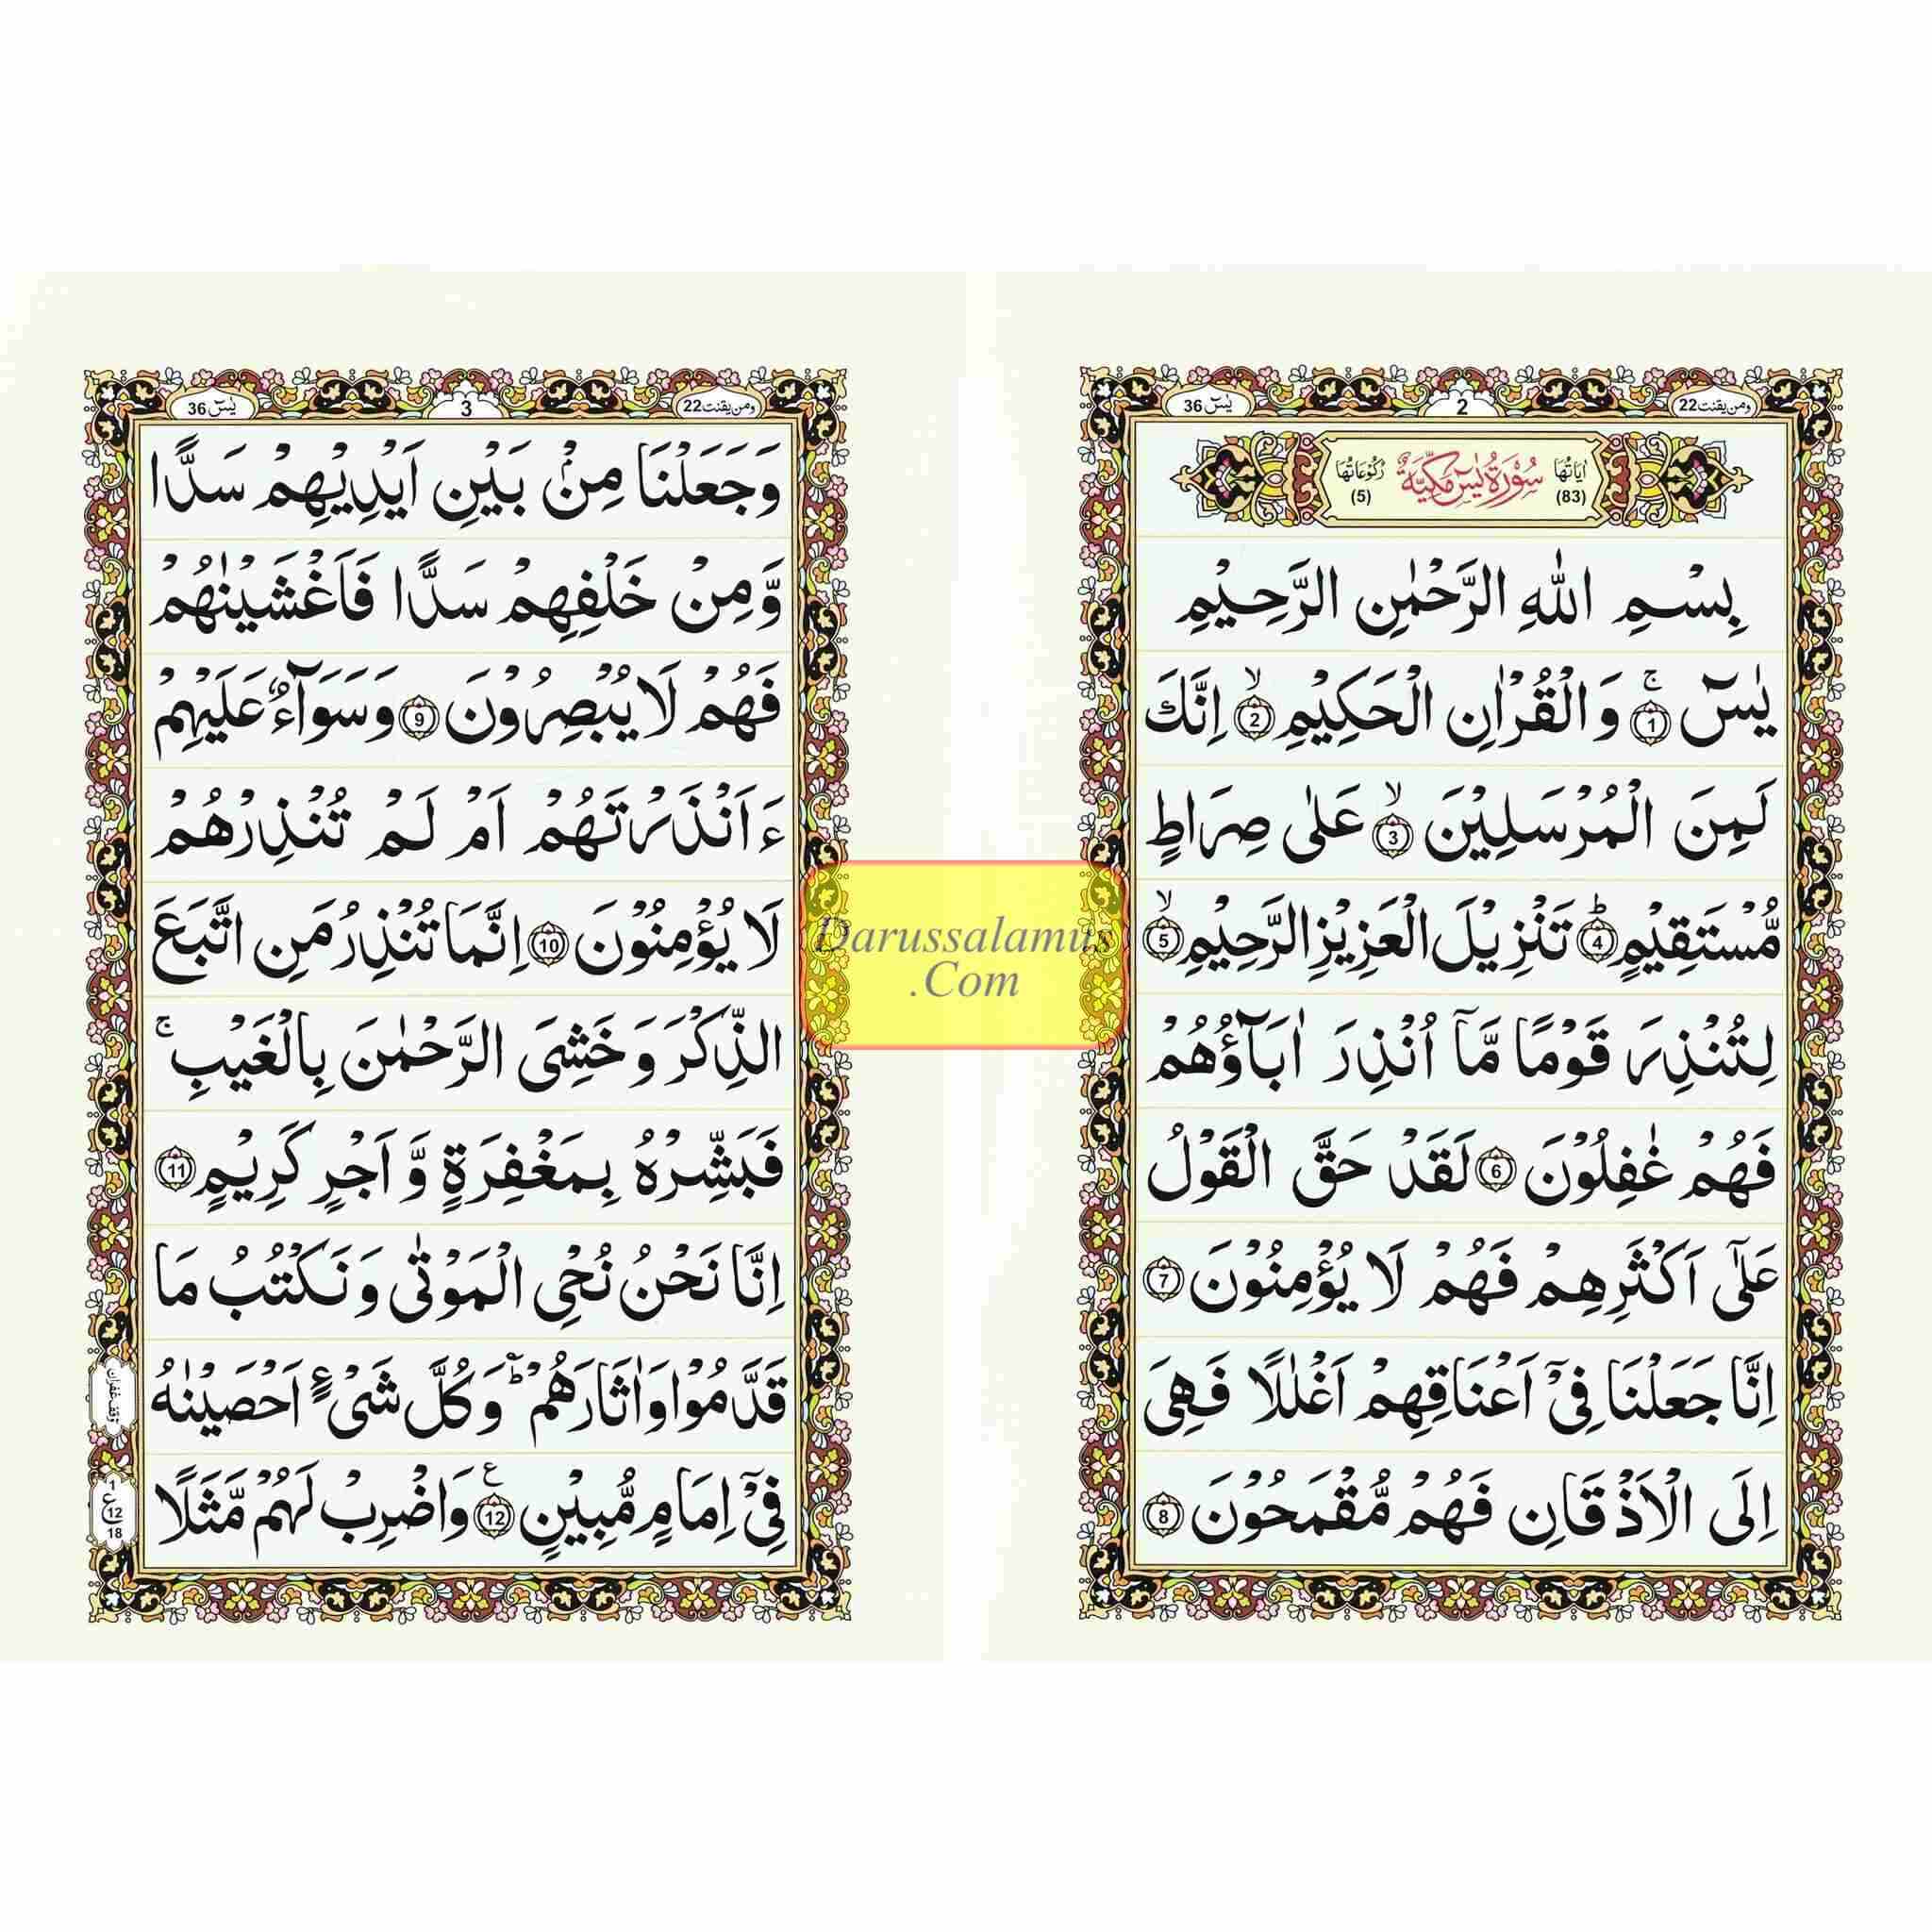 ومن يقنت 22
2
يٰسٓ 36
اٰيَاتُهَا (83)
سُوْرَةُ يٰسٓ مَكِّيَّةٌ
رُكُوْعَاتُهَا (5)
بِسْمِ اللّٰهِ الرَّحْمٰنِ الرَّحِيْمِ
يٰسٓ ۚ 1 وَالْقُرْاٰنِ الْحَكِيْمِ ۙ 2 اِنَّكَ
لَمِنَ الْمُرْسَلِيْنَ ۙ 3 عَلٰى صِرَاطٍ
مُّسْتَقِيْمٍ ؕ 4 تَنْزِيْلَ الْعَزِيْزِ الرَّحِيْمِ ۙ 5
لِتُنْذِرَ قَوْمًا مَّاۤ اُنْذِرَ اٰبَآؤُهُمْ
فَهُمْ غٰفِلُوْنَ 6 لَقَدْ حَقَّ الْقَوْلُ
عَلٰۤى اَكْثَرِهِمْ فَهُمْ لَا يُؤْمِنُوْنَ 7
اِنَّا جَعَلْنَا فِيْۤ اَعْنَاقِهِمْ اَغْلٰلًا فَهِيَ
اِلَى الْاَذْقَانِ فَهُمْ مُّقْمَحُوْنَ 8
ومن يقنت 22
3
يٰسٓ 36
وَجَعَلْنَا مِنْۢ بَيْنِ اَيْدِيْهِمْ سَدًّا
وَّمِنْ خَلْفِهِمْ سَدًّا فَاَغْشَيْنٰهُمْ
فَهُمْ لَا يُبْصِرُوْنَ 9 وَسَوَآءٌ عَلَيْهِمْ
ءَاَنْذَرْتَهُمْ اَمْ لَمْ تُنْذِرْهُمْ
لَا يُؤْمِنُوْنَ 10 اِنَّمَا تُنْذِرُ مَنِ اتَّبَعَ
الذِّكْرَ وَخَشِيَ الرَّحْمٰنَ بِالْغَيْبِ ۚ
فَبَشِّرْهُ بِمَغْفِرَةٍ وَّاَجْرٍ كَرِيْمٍ 11
اِنَّا نَحْنُ نُحْيِ الْمَوْتٰى وَنَكْتُبُ مَا
قَدَّمُوْا وَاٰثَارَهُمْ ؕ وَكُلَّ شَيْءٍ اَحْصَيْنٰهُ
فِيْۤ اِمَامٍ مُّبِيْنٍ 12 ع وَاضْرِبْ لَهُمْ مَّثَلًا
وقف غفران
1
ع 12
18
Darussalamus
.Com